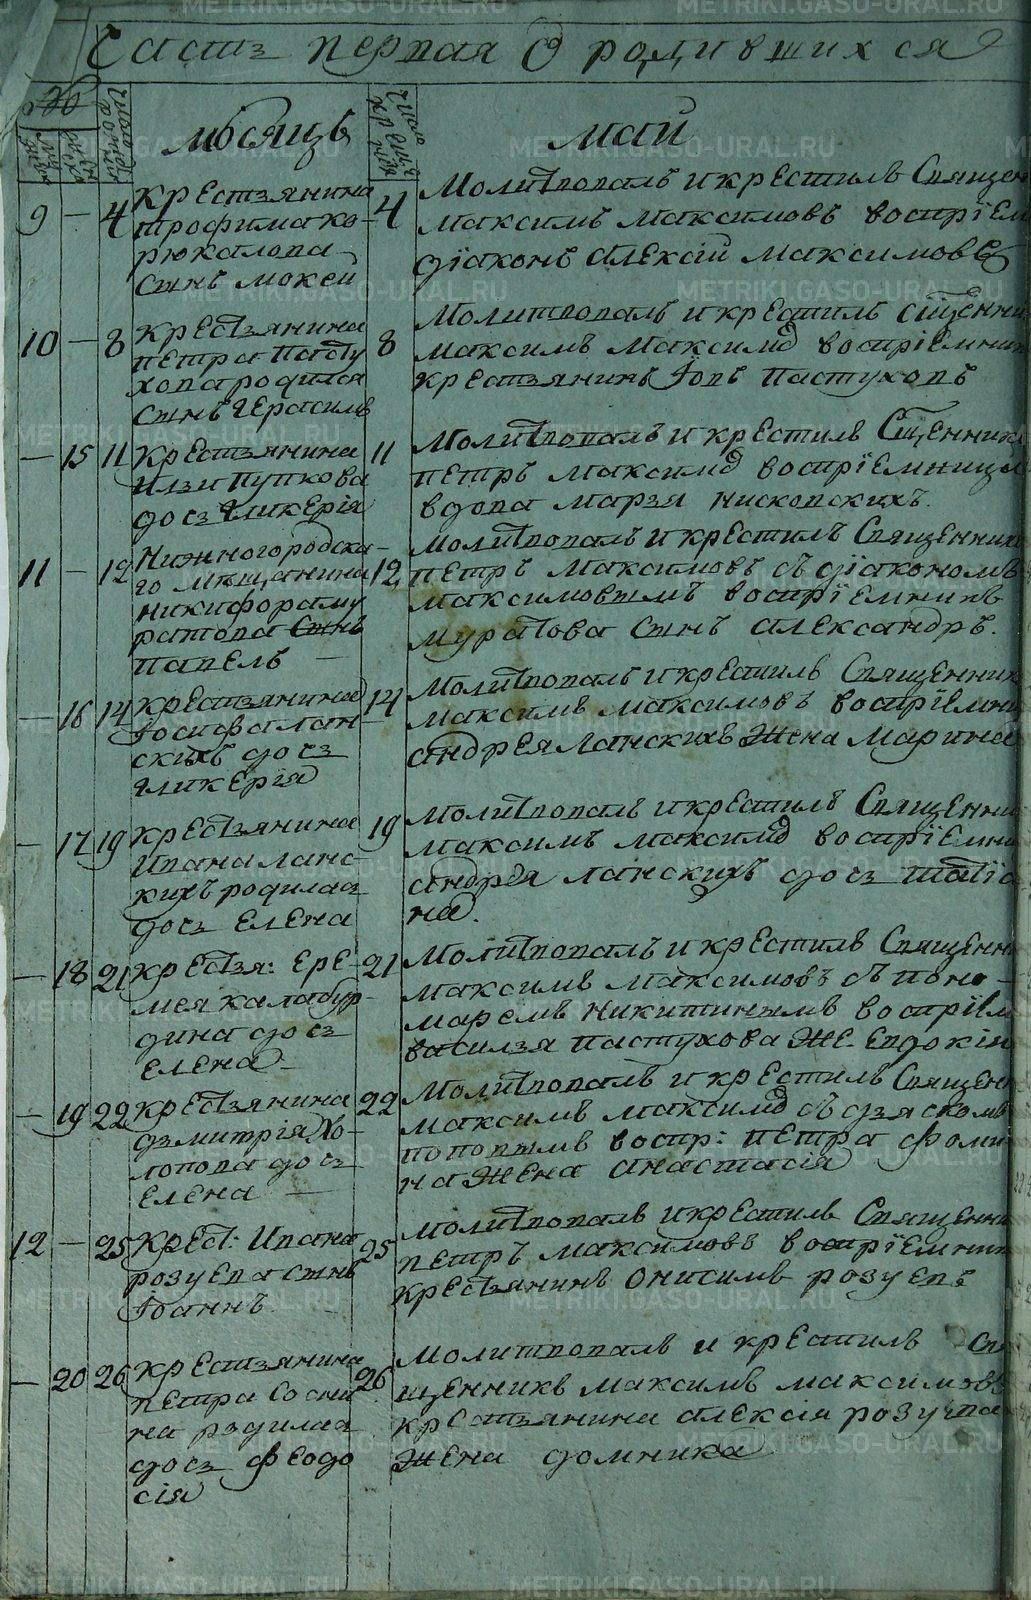 Часть первая О родившихся
месяцъ
май
9 — 4
Крестьянина
трофима ко-
рюкалова
Сынъ мокей
4
Молитвовалъ и крестилъ Священ
максимъ максимовъ восприем
диаконъ алексий максимовъ
10 — 8
крестьянина
петра пасту
хова родился
сынъ герасимъ
8
Молитвовалъ и крестилъ сщенни
максимъ максимо воспріемник
крестьянинъ Іовъ пастуховъ
— 15 11
крестьянина
ильи пупкова
дочь гликерія
11
Молитвовалъ и крестилъ Сщенник
петръ максимо воспріемница
вдова марья нисковскихъ.
11 — 12
Нижногородска-
го мещанина
никифора му
ратова Сынъ
павелъ —
12
молитвовалъ и крестилъ Священник
петръ максимовъ съ діакономъ
максимовымъ воспріемникъ
муратова сынъ александръ.
— 16 14
крестьянина
Іосифа лан-
скихъ дочь
гликерія
14
Молитвовалъ и крестилъ Священник
максимъ максимовъ воспріемни
андрея ланскихъ жена марина
— 17 19
крестьянина
ивана ланс-
кихъ родилась
дочь елена
19
молитвовалъ и крестилъ Священни
максимъ максимо воспріемни
андрея ланскихъ дочь татіа
на.
— 18 21
крестья: ере-
мея калабур-
дина дочь
елена —
21
молитвовалъ и крестилъ Священни
максимъ максимовъ съ поно-
маремъ никитинымъ воспріем
василья пастухова же. евдокія
— 19 22
крестьянина
дьмитрія Хо-
лопова дочь
елена —
22
молитвовалъ и крестилъ Священ
максимъ максимо съ дьячкомъ
поповымъ воспр: петра фоми
на жена анастасія
12 — 25
крест: Ивана
розуева сынъ
Іоаннъ.
25
молитвовалъ и крестилъ Священни
петръ максимовъ воспріемник
крестьянинъ онисимъ розуевъ
— 20 26
крестьянина
петра Сосни
на родилась
дочь феодо
сія
26
молитвовалъ и крестилъ Свя
щенникъ максимъ максимовъ
крестьянина алексія розуева
жена домника
METRIKI.GASO-URAL.RU